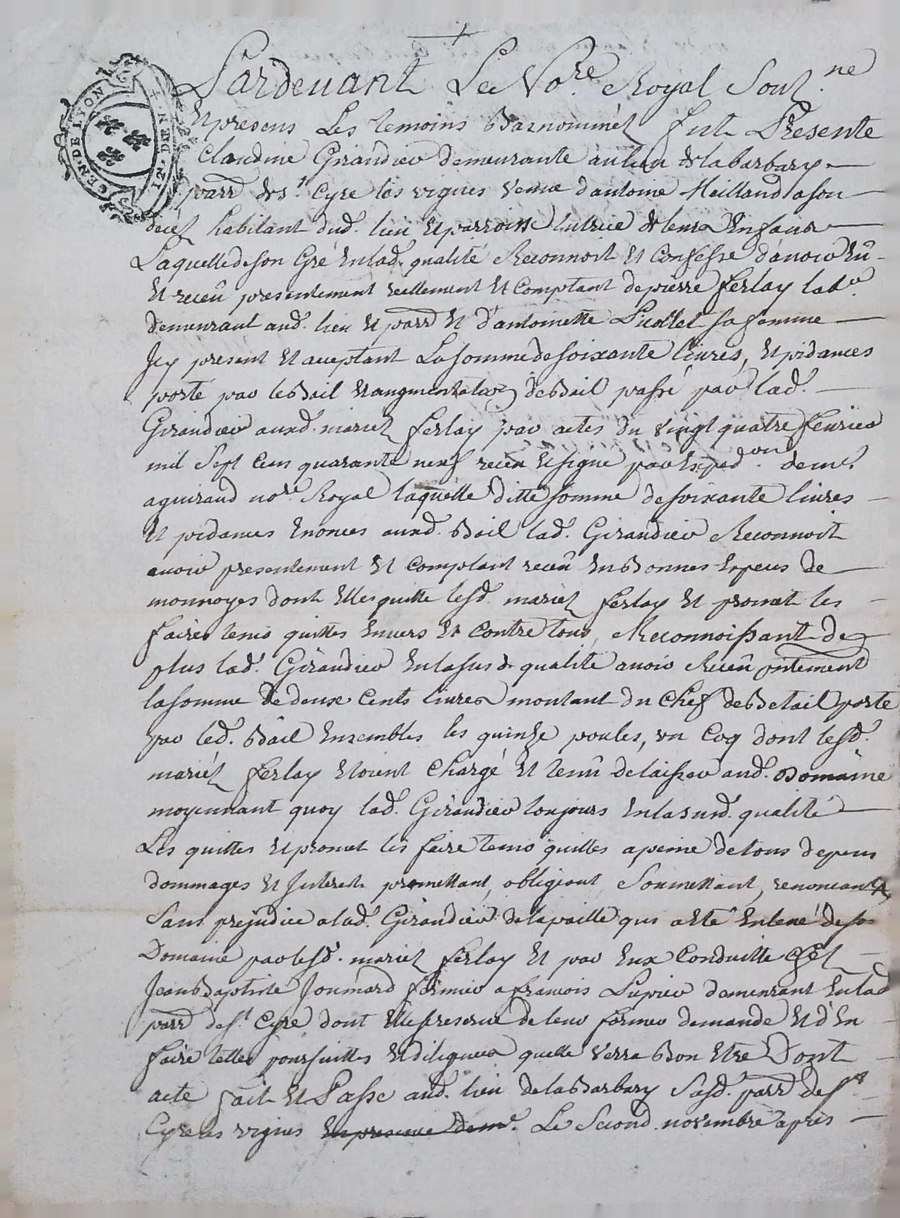 GEN. DE LYON 12. DEN. R.
Pardevant Le No.re Royal Sous.ne
Et presens Les temoins Bas nommés fut Presente
Claudine Girandier demeurante au lieu de la barbary
parr. de s.t Cyre les vignes veuve d'antoine Meilland a son
decès habitant dud. lieu et parroisse tutrice de leurs Enfans
Laquelle de son Gré En lad. qualité Reconnoit Et Confesse d'avoir Eû
Et receu presentement reellement Et Comptant de pierre ferlay lab.r
demeurant aud. lieu Et parr. Et d'antoinette sa femme
Jcy present Et acceptant La somme de soixante livres, Et pidances
porté par le Bail Et augmentation de Bail passé par lad.
Girandier auxd. mariés ferlay par actes du vingt quatre fevrier
mil Sept Cens quarante neuf receu Et signé par Exped.on de me.
aguiraud no.re Royal laquelle ditte somme de soixante livres
Et pidances Enoncés auxd. Bail lad. Girandier Reconnoit
avoir presentement Et Comptant receu En Bonnes Especes de
monnoyes dont Elle quitte lesd. mariés ferlay Et promet les
faire tenir quittes Envers Et Contre tous, Reconnoissant de
plus lad. Girandier En la susd. qualité avoir Receu p.ntement
la somme de deux Cents livres montant du Chef de Betail porté
par led. Bail Ensembles les quinze poules, un Coq dont lesd.
mariés ferlay Etoient Chargé Et tenû de laisser aud. Domaine
moyennant quoy lad. Girandier toujours En la susd. qualité
Les quitte Et promet les faire tenir quittes a peine de tous depens
dommages Et Interets promettant, obligeant Soumettant, renonceant &
Sans prejudice a lad. Girandier de la paille qui a Eté Enlevé de son
Domaine par lesd. mariés ferlay Et par Eux Conduitte chez
Jean Baptiste Joumard fermier a francois Lupier demeurant En lad
parr. de s.t Cyre dont Elle se reserve de leur former demande Et d'En
faire telles poursuittes Et diligences quelle verra Bon Etre Dont
acte fait Et Passé aud. lieu de la Barbary Susd. parr. de s.t
Cyre les vignes En presence de me. Le Second novembre après